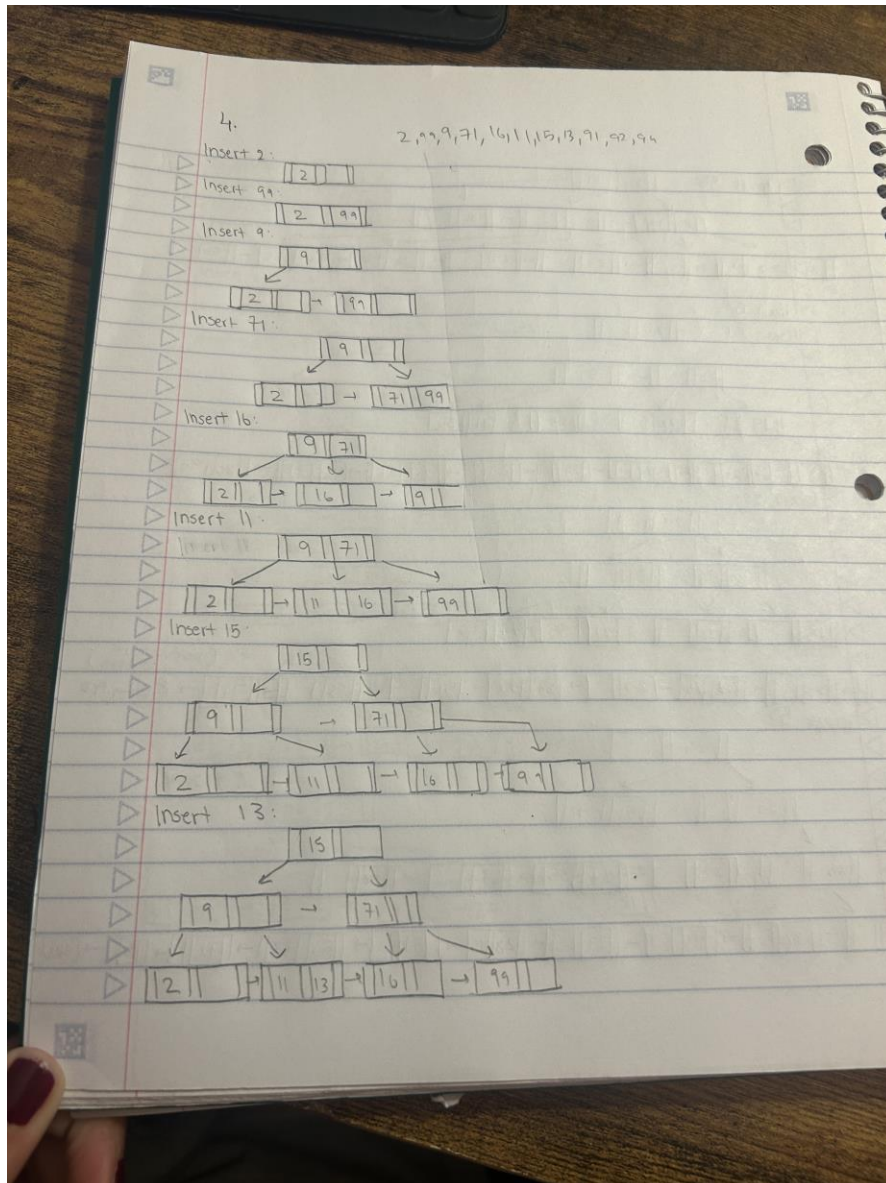 4.
2, 99, 9, 71, 16, 11, 15, 13, 91, 92, 94
Insert 2:
2
Insert 99:
2 99
Insert 9:
9
2 → 99
Insert 71:
9
2 → 71 99
Insert 16:
9 71
2 → 16 → 9
Insert 11:
9 71
2 → 11 16 → 99
Insert 15:
15
9 → 71
2 → 11 → 16 → 99
Insert 13:
15
9 → 71
2 → 11 13 → 16 → 99